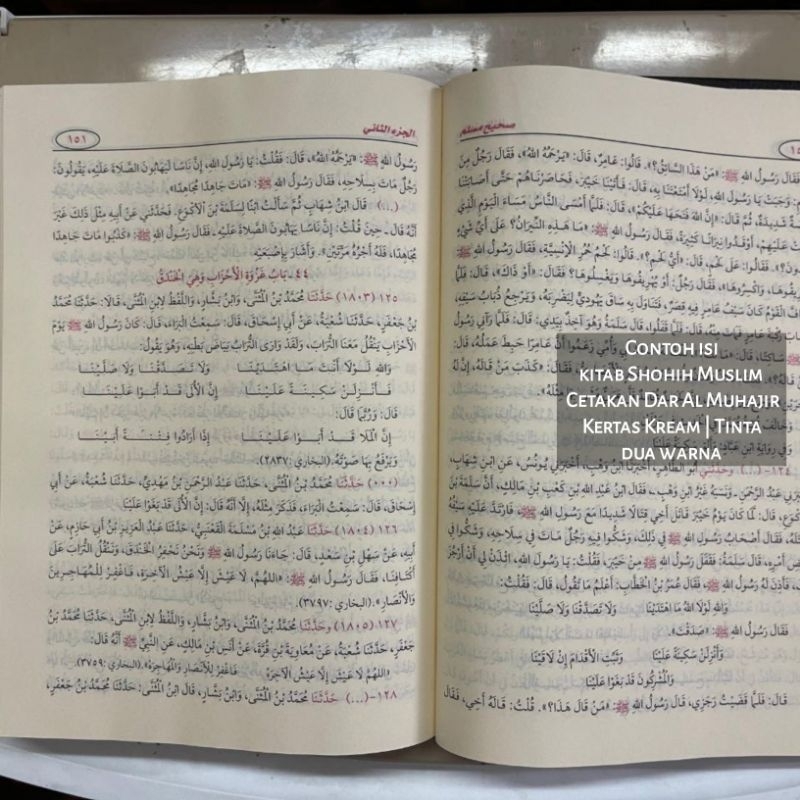 صحيح مسلم
فَقَالَ رَسُولُ اللهِ ﷺ: «مَنْ هَذَا السَّائِقُ؟». قَالُوا: عَامِرٌ، قَالَ: «يَرْحَمُهُ اللهُ»، فَقَالَ رَجُلٌ مِنَ
وَجَبَتْ يَا رَسُولَ اللهِ، لَوْلَا أَمْتَعْتَنَا بِهِ، قَالَ: فَأَتَيْنَا خَيْبَرَ، فَحَاصَرْنَاهُمْ حَتَّى أَصَابَتْنَا
شَدِيدَةٌ، ثُمَّ قَالَ: «إِنَّ اللهَ فَتَحَهَا عَلَيْكُمْ»، قَالَ: فَلَمَّا أَمْسَى النَّاسُ مَسَاءَ الْيَوْمِ الَّذِي
عَلَيْهِمْ، أَوْقَدُوا نِيرَانًا كَثِيرَةً، فَقَالَ رَسُولُ اللهِ ﷺ: «مَا هَذِهِ النِّيرَانُ؟ عَلَى أَيِّ شَيْءٍ
فَقَالُوا: عَلَى لَحْمٍ، قَالَ: «أَيُّ لَحْمٍ؟». قَالُوا: لَحْمُ حُمُرِ الْإِنْسِيَّةِ، فَقَالَ رَسُولُ اللهِ ﷺ:
وَاكْسِرُوهَا»، فَقَالَ رَجُلٌ: أَوْ يُهَرِيقُوهَا وَيَغْسِلُوهَا؟ فَقَالَ: «أَوْ ذَاكَ»، قَالَ: فَلَمَّا
الْقَوْمُ كَانَ سَيْفُ عَامِرٍ فِيهِ قِصَرٌ، فَتَنَاوَلَ بِهِ سَاقَ يَهُودِيٍّ لِيَضْرِبَهُ، وَيَرْجِعُ ذُبَابُ سَيْفِهِ،
رُكْبَةَ عَامِرٍ فَمَاتَ مِنْهُ، قَالَ: فَلَمَّا قَفَلُوا، قَالَ سَلَمَةُ وَهُوَ آخِذٌ بِيَدِي: قَالَ: فَلَمَّا رَآنِي رَسُولُ
وَأُمِّي زَعَمُوا أَنَّ عَامِرًا حَبِطَ عَمَلُهُ، قَالَ:
«كَذَبَ مَنْ قَالَهُ، إِنَّ لَهُ
وَفِي رِوَايَةِ ابْنِ عَبَّادٍ: وَأَلْقِ سَكِينَةً عَلَيْنَا
١٢٤-(...) وَحَدَّثَنِي أَبُو الطَّاهِرِ، أَخْبَرَنَا ابْنُ وَهْبٍ، أَخْبَرَنِي يُونُسُ، عَنِ ابْنِ شِهَابٍ،
عَبْدُ الرَّحْمَنِ - وَنَسَبَهُ غَيْرُ ابْنِ وَهْبٍ، فَقَالَ ابْنُ عَبْدِ اللهِ بْنِ كَعْبِ بْنِ مَالِكٍ، أَنَّ سَلَمَةَ بْنَ
قَالَ: لَمَّا كَانَ يَوْمُ خَيْبَرَ قَاتَلَ أَخِي قِتَالًا شَدِيدًا مَعَ رَسُولِ اللهِ ﷺ، فَارْتَدَّ عَلَيْهِ سَيْفُهُ
فَقَالَ أَصْحَابُ رَسُولِ اللهِ ﷺ فِي ذَلِكَ، وَشَكُّوا فِيهِ رَجُلٌ مَاتَ فِي سِلَاحِهِ، وَشَكُّوا فِي
أَمْرِهِ، قَالَ سَلَمَةُ: فَقَفَلَ رَسُولُ اللهِ ﷺ مِنْ خَيْبَرَ، فَقُلْتُ: يَا رَسُولَ اللهِ، ائْذَنْ لِي أَنْ أَرْجُزَ
فَأَذِنَ لَهُ رَسُولُ اللهِ ﷺ، فَقَالَ عُمَرُ بْنُ الْخَطَّابِ: أَعْلَمُ مَا تَقُولُ، قَالَ: فَقُلْتُ:
وَاللهِ لَوْلَا اللهُ مَا اهْتَدَيْنَا وَلَا تَصَدَّقْنَا وَلَا صَلَّيْنَا
فَقَالَ رَسُولُ اللهِ ﷺ: «صَدَقْتَ».
وَأَنْزِلَنْ سَكِينَةً عَلَيْنَا وَثَبِّتِ الْأَقْدَامَ إِنْ لَاقَيْنَا
وَالْمُشْرِكُونَ قَدْ بَغَوْا عَلَيْنَا
قَالَ: فَلَمَّا قَضَيْتُ رَجَزِي، قَالَ رَسُولُ اللهِ ﷺ: «مَنْ قَالَ هَذَا؟». قُلْتُ: قَالَهُ أَخِي، فَقَالَ
الجزء الثاني
١٥١
رَسُولُ اللهِ ﷺ: «يَرْحَمُهُ اللهُ»، قَالَ: فَقُلْتُ: يَا رَسُولَ اللهِ، إِنَّ نَاسًا لَيَهَابُونَ الصَّلَاةَ عَلَيْهِ، يَقُولُونَ:
رَجُلٌ مَاتَ بِسِلَاحِهِ، فَقَالَ رَسُولُ اللهِ ﷺ: «مَاتَ جَاهِدًا مُجَاهِدًا».
(...) قَالَ ابْنُ شِهَابٍ: ثُمَّ سَأَلْتُ ابْنًا لِسَلَمَةَ بْنِ الْأَكْوَعِ، فَحَدَّثَنِي عَنْ أَبِيهِ مِثْلَ ذَلِكَ غَيْرَ
أَنَّهُ قَالَ ـ حِينَ قُلْتُ: إِنَّ نَاسًا يَهَابُونَ الصَّلَاةَ عَلَيْهِ ـ فَقَالَ رَسُولُ اللهِ ﷺ: «كَذَبُوا مَاتَ جَاهِدًا
مُجَاهِدًا، فَلَهُ أَجْرُهُ مَرَّتَيْنِ». وَأَشَارَ بِإِصْبَعَيْهِ
٤٤ - بَابُ غَزْوَةِ الْأَحْزَابِ وَهِيَ الْخَنْدَقُ
١٢٥ (١٨٠٣) حَدَّثَنَا مُحَمَّدُ بْنُ الْمُثَنَّى، وَابْنُ بَشَّارٍ، وَاللَّفْظُ لِابْنِ الْمُثَنَّى، قَالَا: حَدَّثَنَا مُحَمَّدُ
بْنُ جَعْفَرٍ، حَدَّثَنَا شُعْبَةُ، عَنْ أَبِي إِسْحَاقَ، قَالَ: سَمِعْتُ الْبَرَاءَ، قَالَ: كَانَ رَسُولُ اللهِ ﷺ يَوْمَ
الْأَحْزَابِ يَنْقُلُ مَعَنَا التُّرَابَ، وَلَقَدْ وَارَى التُّرَابُ بَيَاضَ بَطْنِهِ، وَهُوَ يَقُولُ:
وَاللهِ لَوْلَا أَنْتَ مَا اهْتَدَيْنَا وَلَا تَصَدَّقْنَا وَلَا صَلَّيْنَا
فَأَنْزِلَنْ سَكِينَةً عَلَيْنَا إِنَّ الْأُلَى قَدْ أَبَوْا عَلَيْنَا
قَالَ: وَرُبَّمَا قَالَ:
إِنَّ الْمَلَا قَدْ أَبَوْا عَلَيْنَا إِذَا أَرَادُوا فِتْنَةً أَبَيْنَا
وَيَرْفَعُ بِهَا صَوْتَهُ. (البخاري :٢٨٣٧).
(٠٠٠) حَدَّثَنَا مُحَمَّدُ بْنُ الْمُثَنَّى، حَدَّثَنَا عَبْدُ الرَّحْمَنِ بْنُ مَهْدِيٍّ، حَدَّثَنَا شُعْبَةُ، عَنْ أَبِي
إِسْحَاقَ، قَالَ: سَمِعْتُ الْبَرَاءَ، فَذَكَرَ مِثْلَهُ، إِلَّا أَنَّهُ قَالَ: إِنَّ الْأُلَى قَدْ بَغَوْا عَلَيْنَا
١٢٦ (١٨٠٤) حَدَّثَنَا عَبْدُ اللهِ بْنُ مَسْلَمَةَ الْقَعْنَبِيُّ، حَدَّثَنَا عَبْدُ الْعَزِيزِ بْنُ أَبِي حَازِمٍ، عَنْ
أَبِيهِ، عَنْ سَهْلِ بْنِ سَعْدٍ، قَالَ: جَاءَنَا رَسُولُ اللهِ ﷺ وَنَحْنُ نَحْفِرُ الْخَنْدَقَ، وَنَنْقُلُ التُّرَابَ عَلَى
أَكْتَافِنَا، فَقَالَ رَسُولُ اللهِ ﷺ: «اللهُمَّ، لَا عَيْشَ إِلَّا عَيْشُ الْآخِرَةِ، فَاغْفِرْ لِلْمُهَاجِرِينَ
وَالْأَنْصَارِ». (البخاري :٣٧٩٧).
١٢٧ (١٨٠٥) وحَدَّثَنَا مُحَمَّدُ بْنُ الْمُثَنَّى، وَابْنُ بَشَّارٍ، وَاللَّفْظُ لِابْنِ الْمُثَنَّى، حَدَّثَنَا مُحَمَّدُ بْنُ
جَعْفَرٍ، حَدَّثَنَا شُعْبَةُ، عَنْ مُعَاوِيَةَ بْنِ قُرَّةَ، عَنْ أَنَسِ بْنِ مَالِكٍ، عَنِ النَّبِيِّ ﷺ أَنَّهُ قَالَ:
«اللهُمَّ لَا عَيْشَ إِلَّا عَيْشُ الْآخِرَةِ فَاغْفِرْ لِلْأَنْصَارِ وَالْمُهَاجِرَةِ». (البخاري :٣٧٥٩)
١٢٨-(...) حَدَّثَنَا مُحَمَّدُ بْنُ الْمُثَنَّى، وَابْنُ بَشَّارٍ، قَالَ ابْنُ الْمُثَنَّى: حَدَّثَنَا مُحَمَّدُ بْنُ جَعْفَرٍ،
Contoh isi
kitab Shohih Muslim
Cetakan Dar Al Muhajir
Kertas Kream | Tinta
dua warna